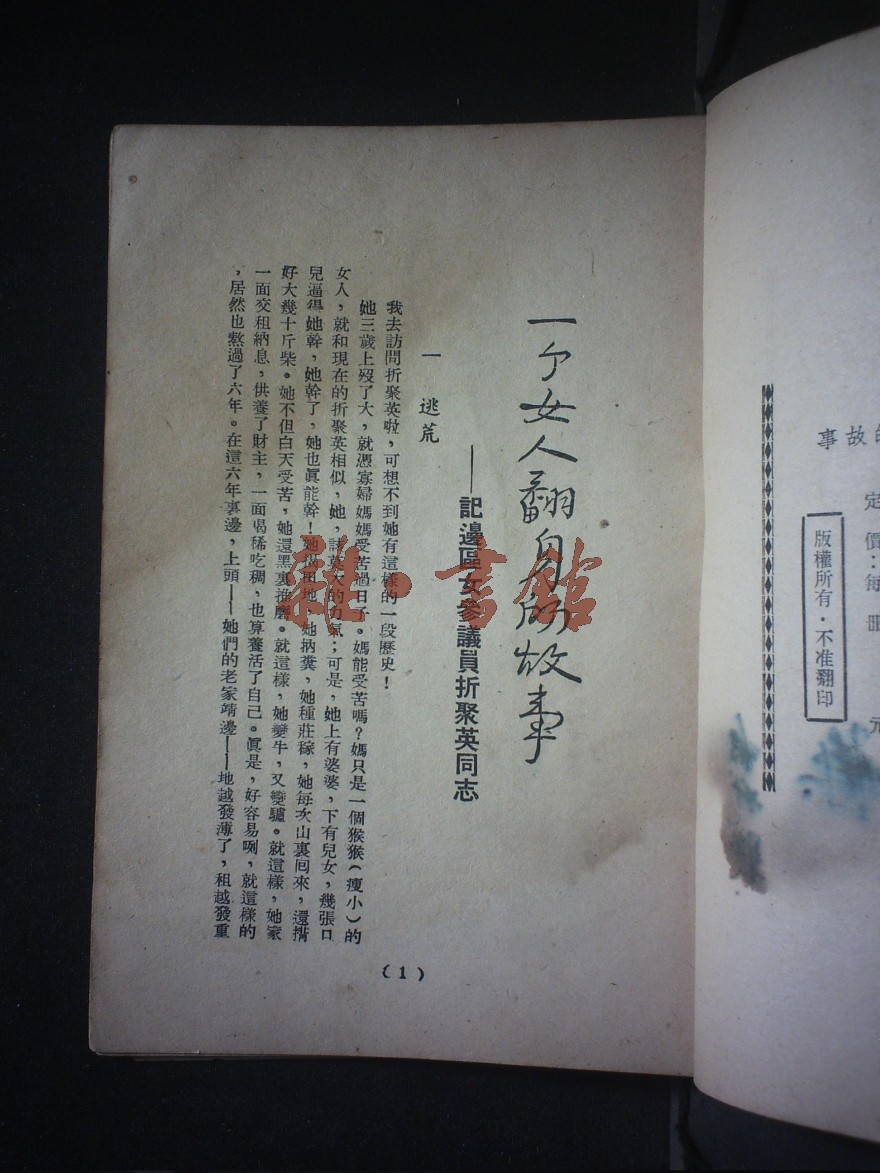 一个女人翻身的故事
——記邊區女參議員折聚英同志
一　逃荒
我去訪問折聚英啦，可想不到她有這樣的一段歷史！
她三歲上歿了大，就憑寡婦媽媽受苦過日子。媽能受苦嗎？媽只是一個猴猴（瘦小）的
女人，就和現在的折聚英相似，她，該莫大的力氣；可是，她上有婆婆，下有兒女，幾張口
兒逼得她幹，她幹了，她也眞能幹！她攬租地，她抐糞，她種莊稼，她每次山裏囘來，還揹
好大幾十斤柴。她不但白天受苦，她還黑裏推磨。就這樣，她變牛，又變驢。就這樣，她家
一面交租納息，供養了財主，一面喝稀吃稠，也算養活了自己。眞是，好容易咧，就這樣的
，居然也熬過了六年。在這六年裏邊，上頭——她們的老家靖邊——地越發薄了，租越發重
(1)
故事
定價：每冊　元
版權所有・不准翻印
雜・書館